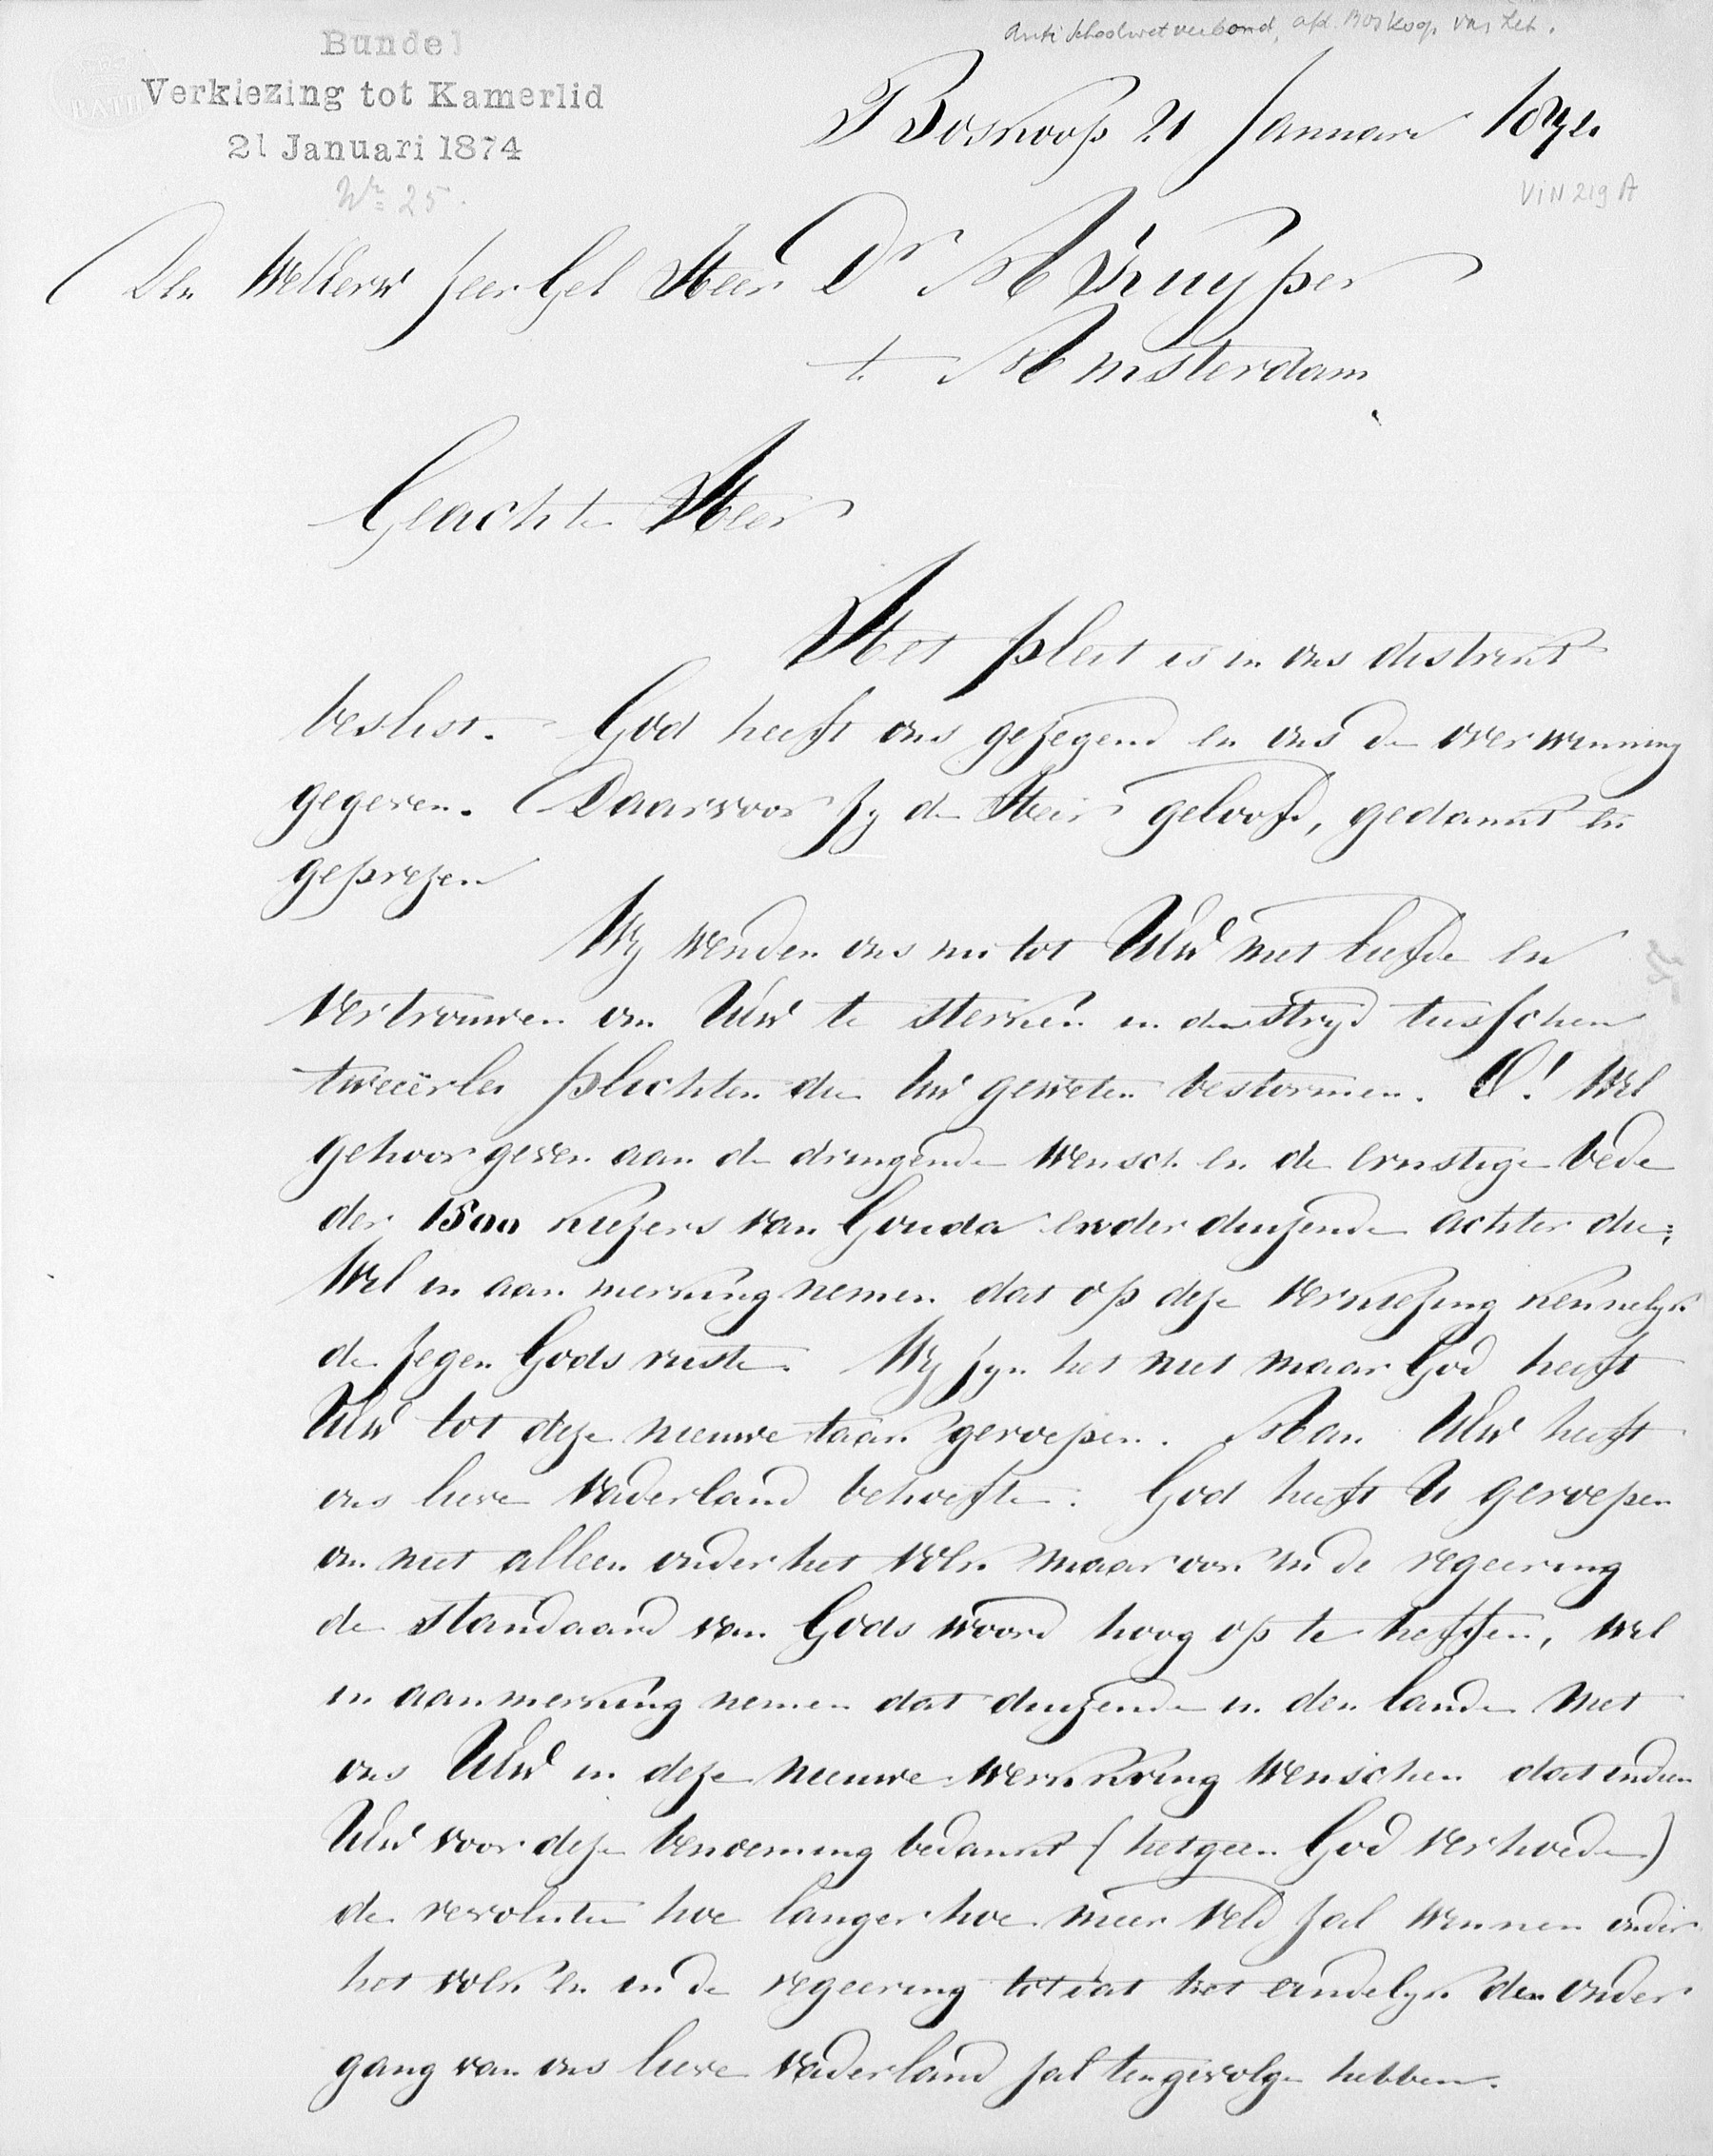 Anti schoolwetverbond, afd. Boskoop
Bundel
Verkiezing tot Kamerlid
21 Januari 1874
No 25.
VIN 219 A
Boskoop 21 Januari 1874
Den WelEerw Zeer Gel Heer Dr A Kuyper
te Amsterdam
Geachte Heer
Het pleit is in ons district
beslist. God heeft ons gezegend en ons de overwinning
gegeven. Daarvoor zy de Heer geloofd, gedankt en
geprezen
Wy wenden ons nu tot UEw met liefde en
vertrouwen om UEw te sterken in den stryd tusschen
tweeërlei plichten die Uw geweten bestormen. O! Wil
gehoor geven aan de dringende wensch en de ernstige bede
der 1500 kiezers van Gouda en der duizende achter die;
Wil in aanmerking nemen dat op deze verkiezing kennelyk
de zegen Gods rustte. Wy zyn het niet maar God heeft
UEw tot deze nieuwe taak geroepen. Aan UEw heeft
ons lieve Vaderland behoefte. God heeft U geroepen
om niet alleen onder het volk maar ook in de regeering
de standaard van Gods woord hoog op te heffen, wil
in aanmerking nemen dat duizende in den lande met
ons UEw in deze nieuwe werkkring wenschen dat indien
UEw voor deze benoeming bedankt (hetgeen God verhoede)
de revolutie hoe langer hoe meer veld zal winnen onder
het volk en in de regeering totdat het eindelyk den onder
gang van ons lieve Vaderland zal tengevolge hebben.